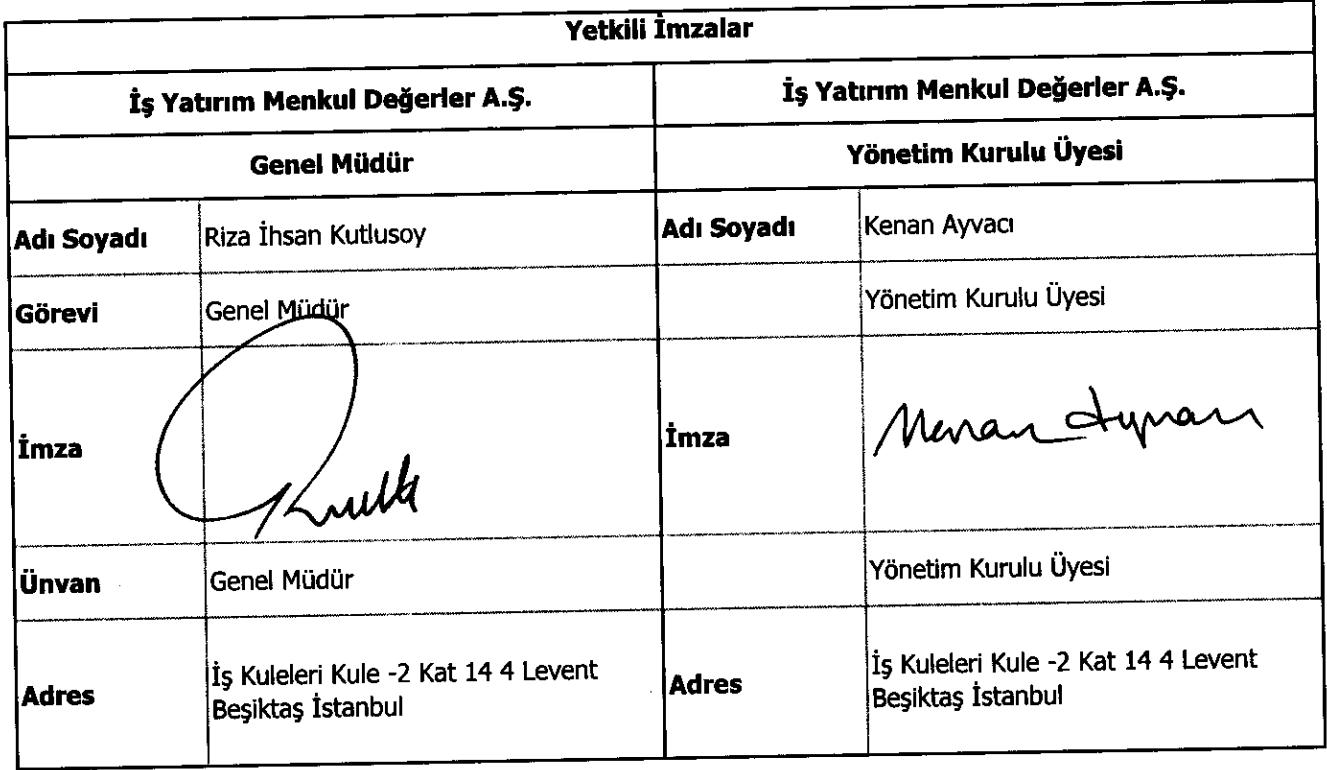 Yetkili İmzalar
İş Yatırım Menkul Değerler A.Ş. İş Yatırım Menkul Değerler A.Ş.
Genel Müdür Yönetim Kurulu Üyesi
Adı Soyadı Riza İhsan Kutlusoy Adı Soyadı Kenan Ayvacı
Görevi Genel Müdür Yönetim Kurulu Üyesi
İmza İmza
Ünvan Genel Müdür Yönetim Kurulu Üyesi
Adres İş Kuleleri Kule -2 Kat 14 4 Levent Adres İş Kuleleri Kule -2 Kat 14 4 Levent
Beşiktaş İstanbul Beşiktaş İstanbul